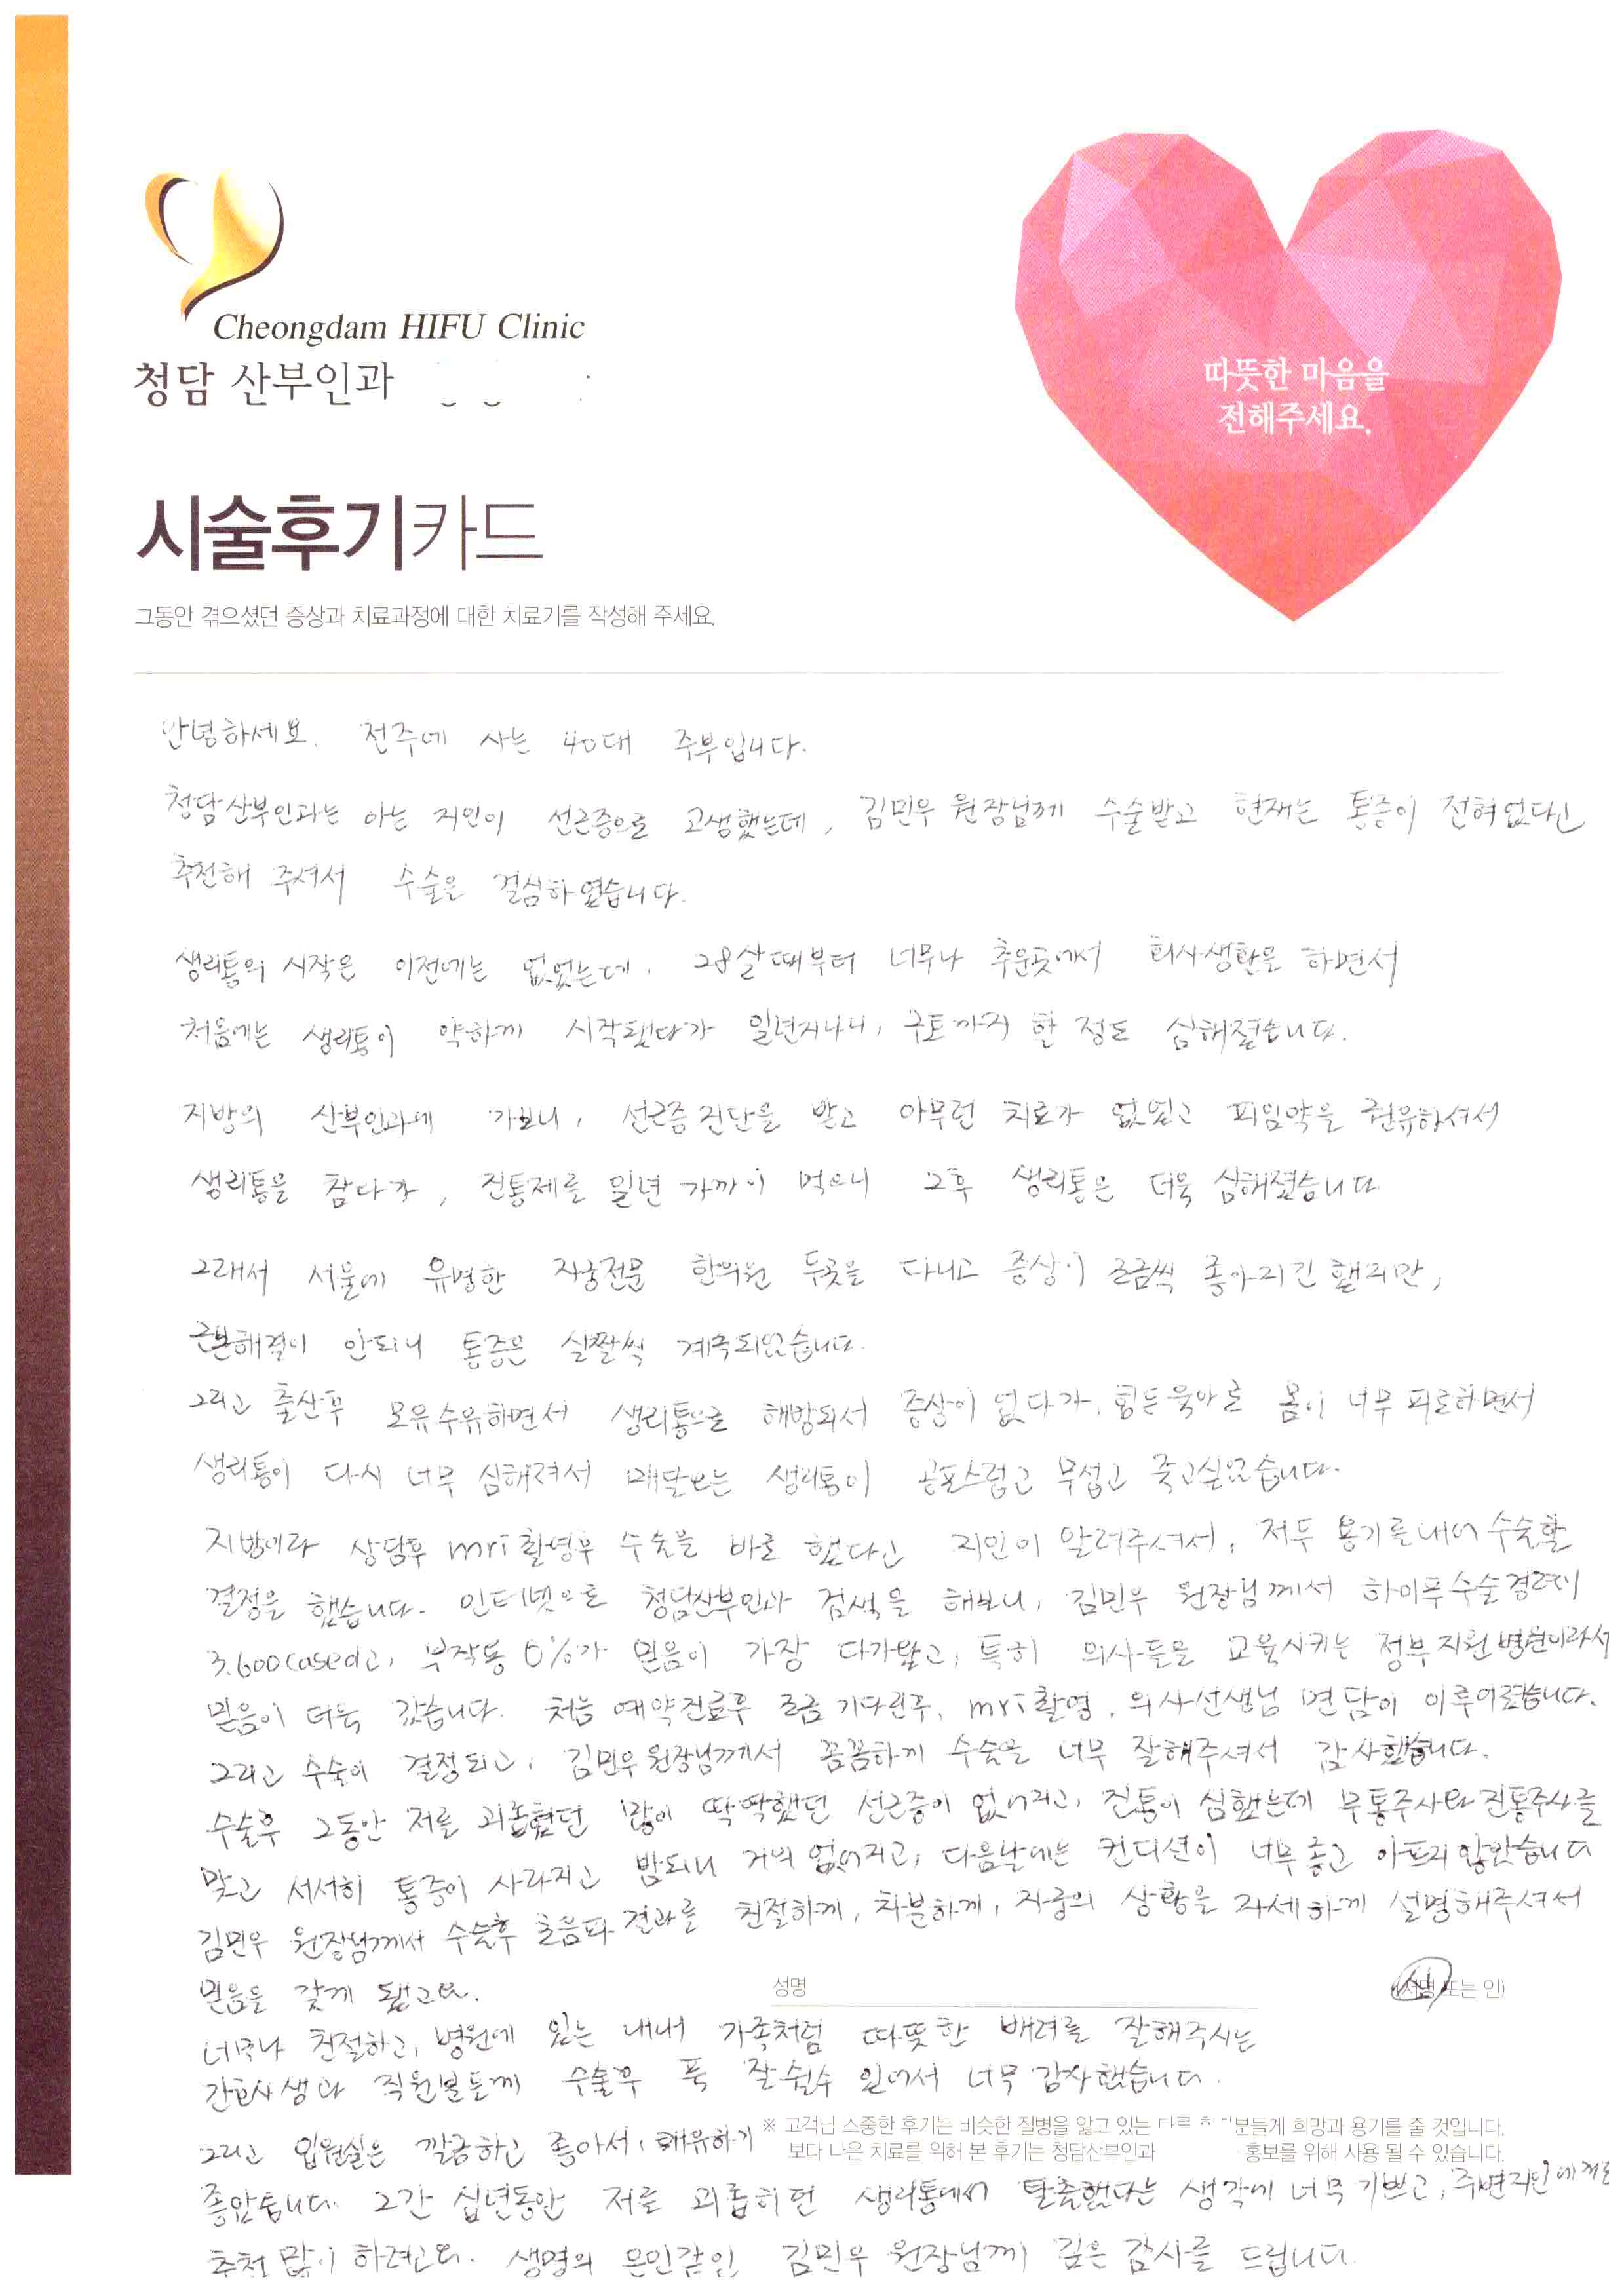 Cheongdam HIFU Clinic
청담 산부인과
따뜻한 마음을
전해주세요.
시술후기카드
그동안 겪으셨던 증상과 치료과정에 대한 치료기를 작성해 주세요.
안녕하세요. 전주에 사는 40대 주부입니다.
청담산부인과는 아는 지인이 선근증으로 고생했는데, 김민우 원장님께 수술받고 현재는 통증이 전혀없다고
추천해 주셔서 수술을 결심하였습니다.
생리통의 시작은 이전에는 없었는데, 28살때부터 너무나 추운곳에서 회사생활을 하면서
처음에는 생리통이 약하게 시작됐다가 일년지나니, 구토까지 한 정도 심해졌습니다.
지방의 산부인과에 가보니, 선근증진단을 받고 아무런 치료가 없었고 피임약을 권유하셔서
생리통을 참다가, 진통제를 일년 가까이 먹으니 그후 생리통은 더욱 심해졌습니다
그래서 서울에 유명한 자궁전문 한의원 두곳을 다니고 증상이 조금씩 좋아지긴 했지만,
근본해결이 안되니 통증은 살짝씩 계속되었습니다.
그리고 출산후 모유수유하면서 생리통으로 해방되서 증상이 없다가, 힘든육아로 몸이 너무 피로하면서
생리통이 다시 너무 심해져서 매달오는 생리통이 공포스럽고 무섭고 죽고싶었습니다.
지방이라 상담후 mri촬영후 수술을 바로 했다고 지인이 알려주셔서, 저두 용기를내어 수술할
결정을 했습니다. 인터넷으로 청담산부인과 검색을 해보니, 김민우 원장님께서 하이푸수술경력이
3,600case이고, 부작용 0%가 믿음이 가장 다가왔고, 특히 의사들을 교육시키는 정부지원병원이라서
믿음이 더욱 갔습니다. 처음 예약진료후 조금 기다린후, mri촬영, 의사선생님 면담이 이루어졌습니다.
그리고 수술이 결정되고, 김민우원장님께서 꼼꼼하게 수술을 너무 잘해주셔서 감사했습니다.
수술후 그동안 저를 괴롭혔던 많이 딱딱했던 선근증이 없어지고, 진통이 심했는데 무통주사와 진통주사를
맞고 서서히 통증이 사라지고 밤되니 거의 없어지고, 다음날에는 컨디션이 너무좋고 아프지않았습니다
김민우 원장님께서 수술후 초음파 결과를 친절하게, 차분하게, 자궁의 상황을 자세하게 설명해주셔서
믿음을 갖게 됐고요.
성명
또는 인)
너무나 친절하고, 병원에 있는 내내 가족처럼 따뜻한 배려를 잘해주시는
간호사생과 직원분들께 수술후 푹 잘쉴수 있어서 너무 감사했습니다.
※ 고객님 소중한 후기는 비슷한 질병을 앓고 있는 분들게 희망과 용기를 줄 것입니다.
보다 나은 치료를 위해 본 후기는 청담산부인과 홍보를 위해 사용 될 수 있습니다.
그리고 입원실은 깔끔하고 좋아서,
좋았습니다. 그간 십년동안 저를 괴롭히던 생리통에서 탈출했다는 생각에 너무 기쁘고,
추천 많이 하려고요. 생명의 은인같인 김민우 원장님께 깊은 감사를 드립니다.